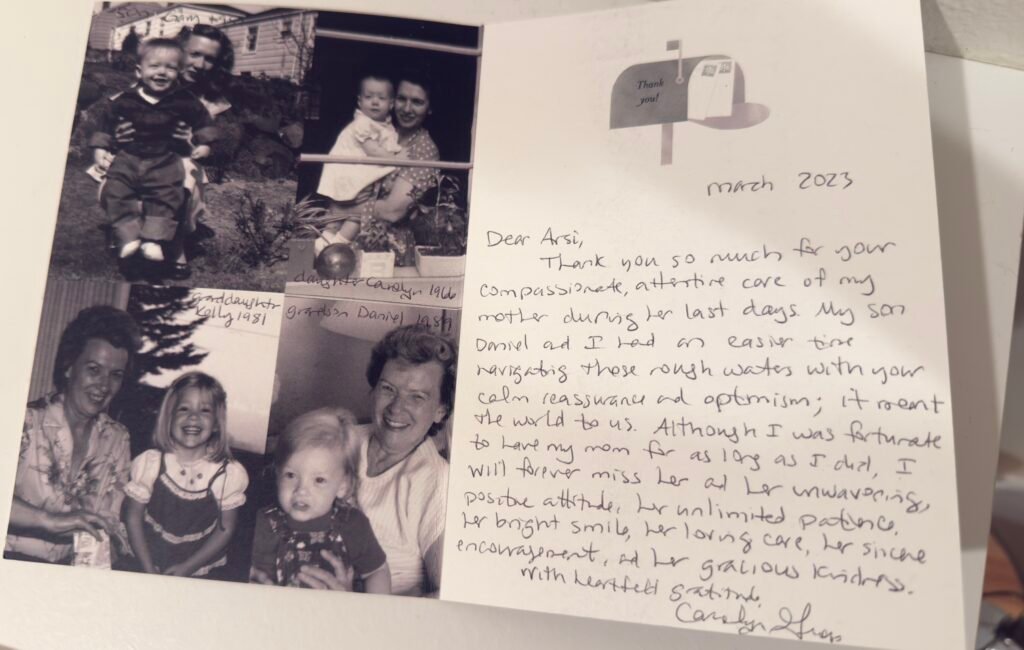 daughter Carolyn 1966
granddaughter
Kelly 1981
grandson Daniel 1989
Thank
you!
march 2023
Dear Arsi,
Thank you so much for your
compassionate, attentive care of my
mother during her last days. My son
Daniel ad I had an easier time
navigating those rough waters with your
calm reassurance ad optimism; it meant
the world to us. Although I was fortunate
to have my mom for as long as I did, I
will forever miss her ad her unwavering,
positive attitude, her unlimited patience,
her bright smile, her loving care, her sincere
encouragement, ad her gracious kindness.
With heartfelt gratitude,
Carolyn